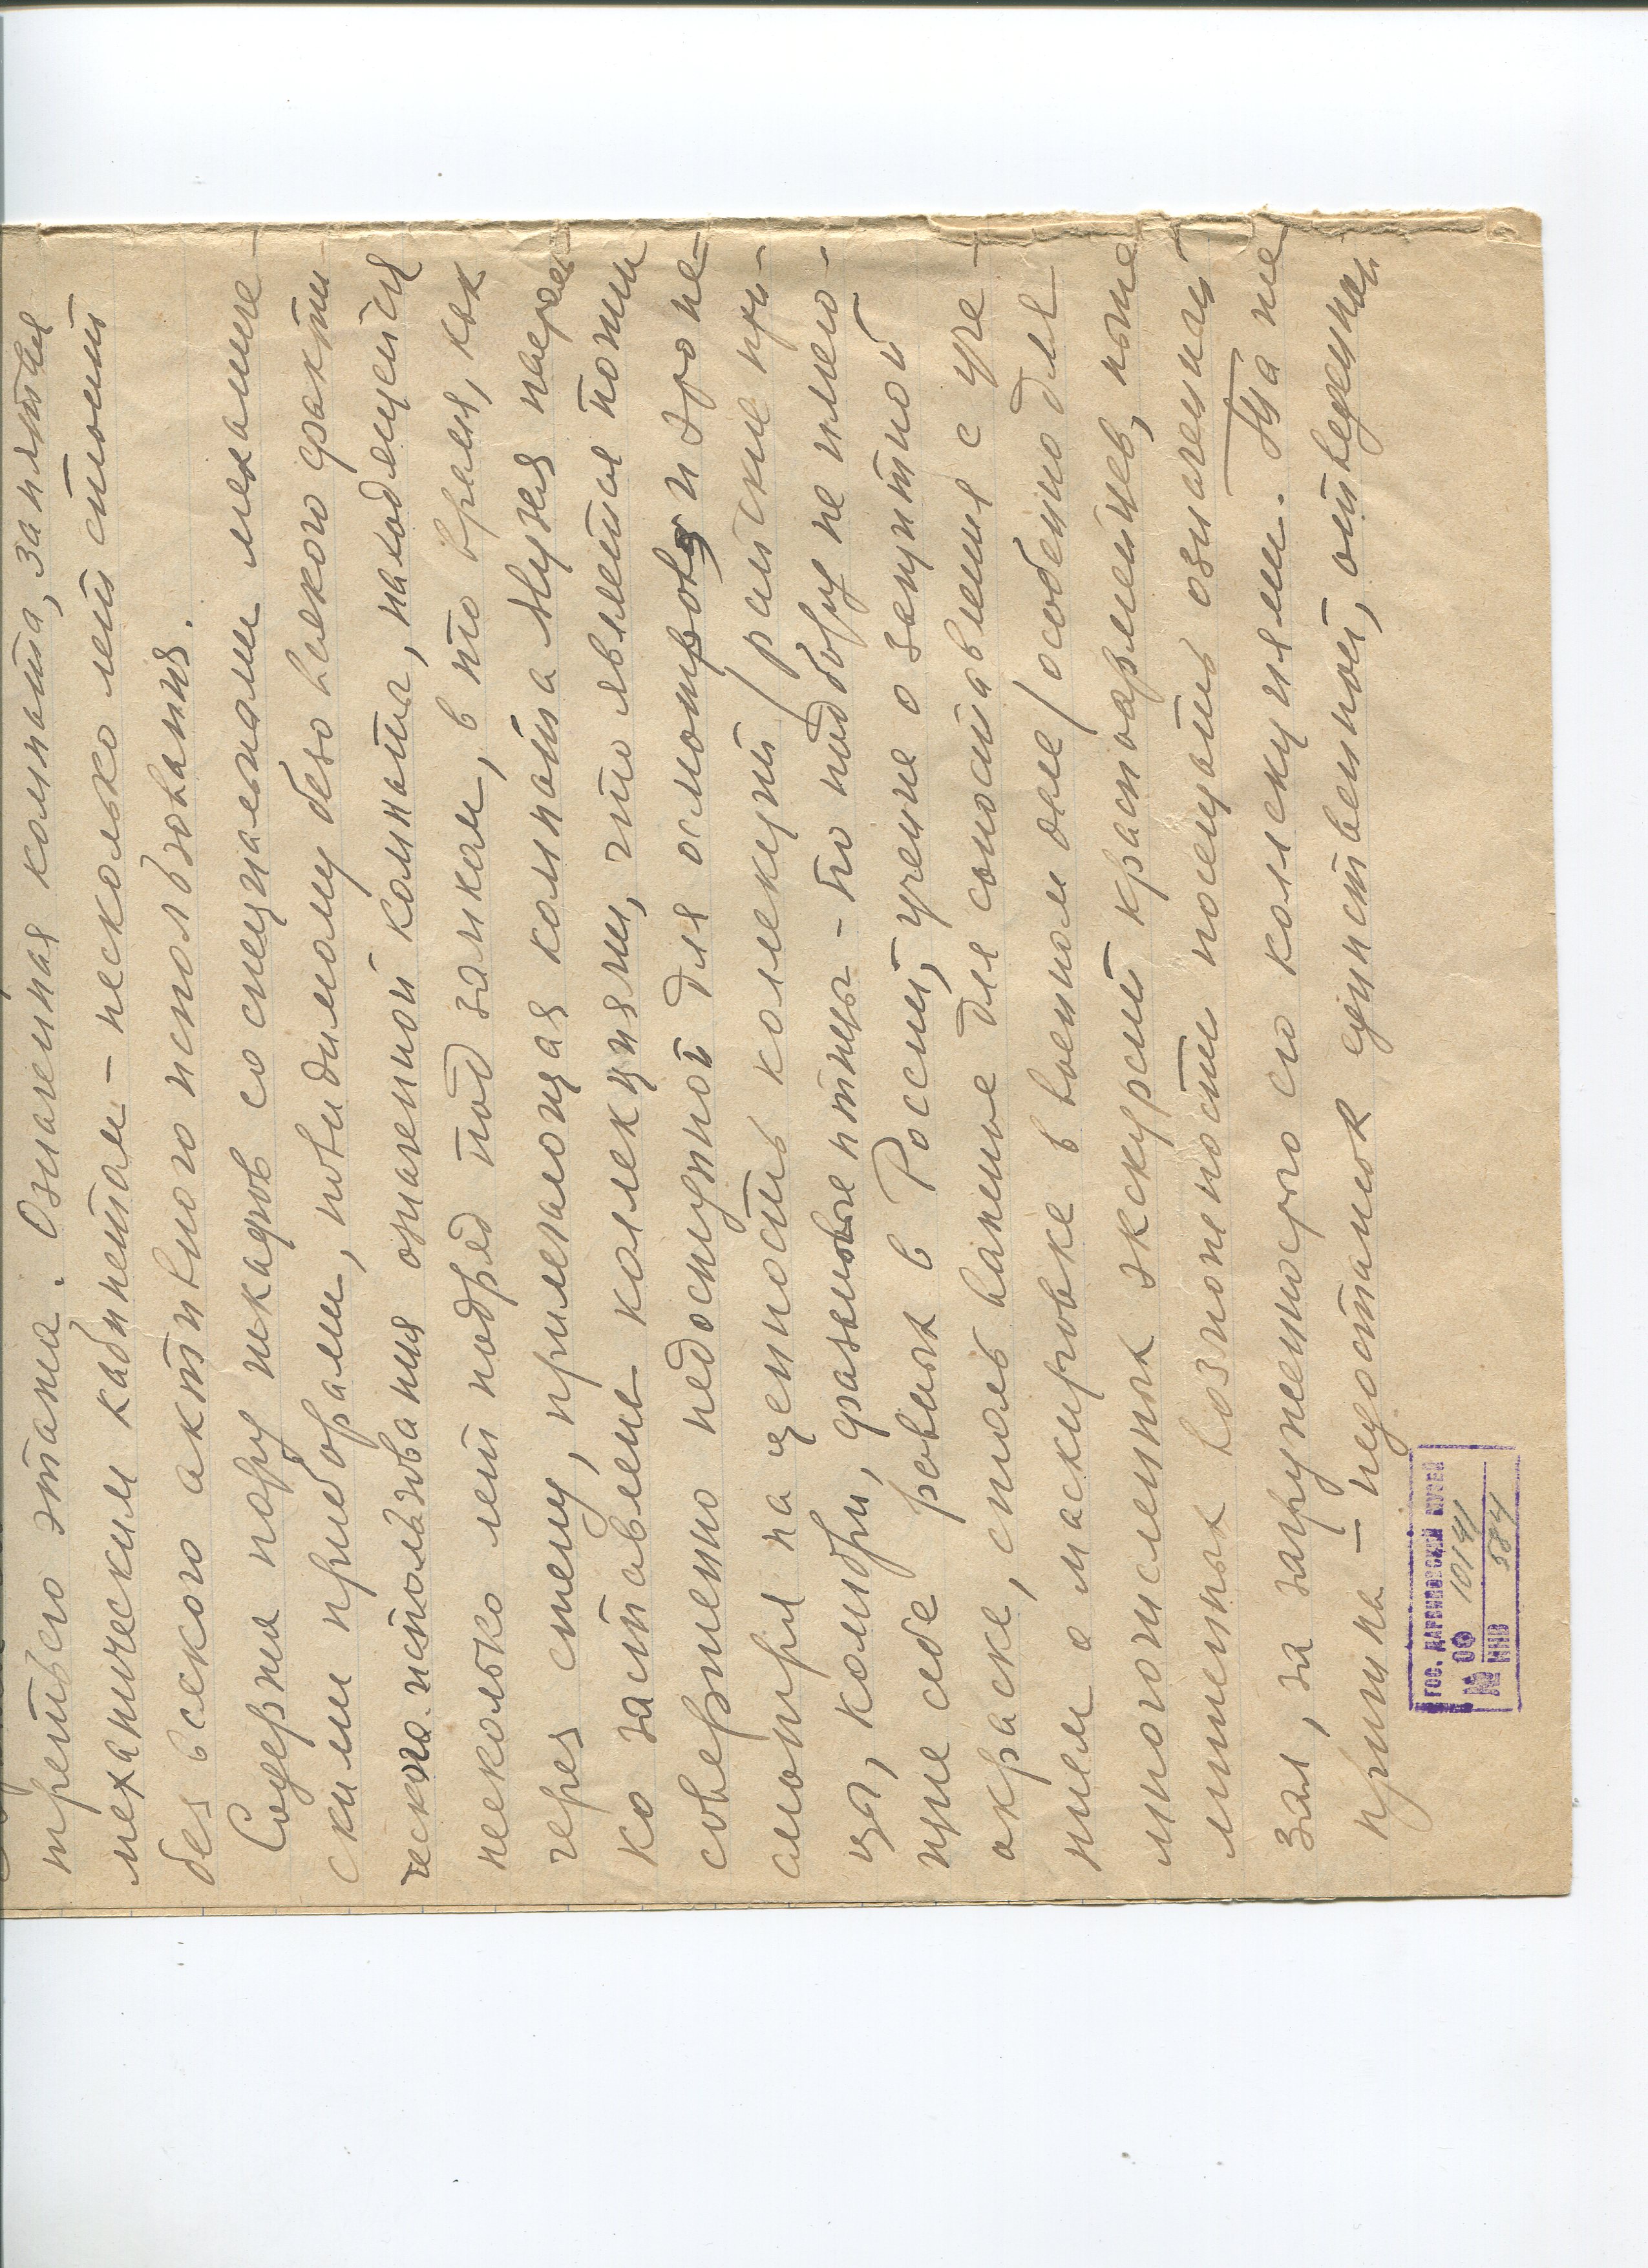 третьего этажа. Означенная комната, занятая
механическим кабинетом – несколько лет стоит
без всякого активного использования.
Содержа пору шкафов со специальными механиче-
скими приборами, повидимому безо всякого факти-
ческого использования означенной комнаты, находящейся
несколько лет подряд под замком, в то время, как
через стену, прилегающая комната Музея нареч
ко заставлена коллекциями, что является почти
совершенно недоступной для осмотров, и это не-
смотря на ценность коллекций / райские пти-
цы, колибри, фазановые птицы – по подбору не имею-
щие себе ровных в России, учение о защитной
окраске, столь важное для сопоставления с уче-
нием о маскировке в военном деле / особенно для
многочисленных экскурсий красноармейцев, ныне
лишенных возможности посещать означенный
зал, за загруженностью его коллекциями. Та же
причина – недостаток единственной, отведенной
ГОС. ДАРВИНОВСКИЙ МУЗЕЙ
№ ОФ 10141
ИНВ 584